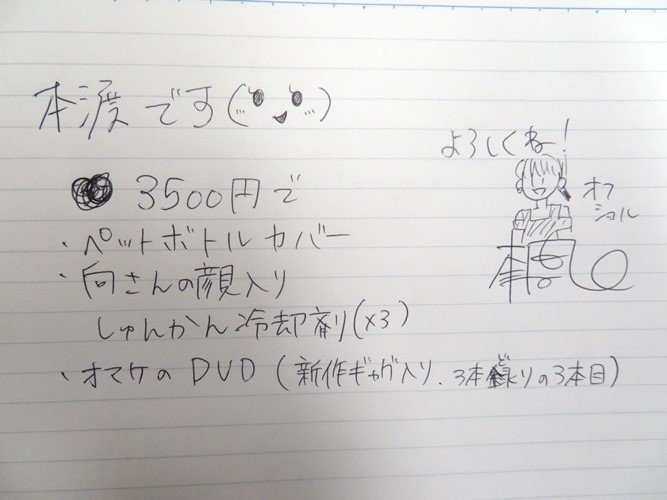 本渡です
よろしくね!
オフ
ショル
3500円で
・ペットボトルカバー
・向さんの顔入り
しゅんかん冷却剤(×3)
・オマケのDVD(新作ギャグ入り、3本録りの3本目)